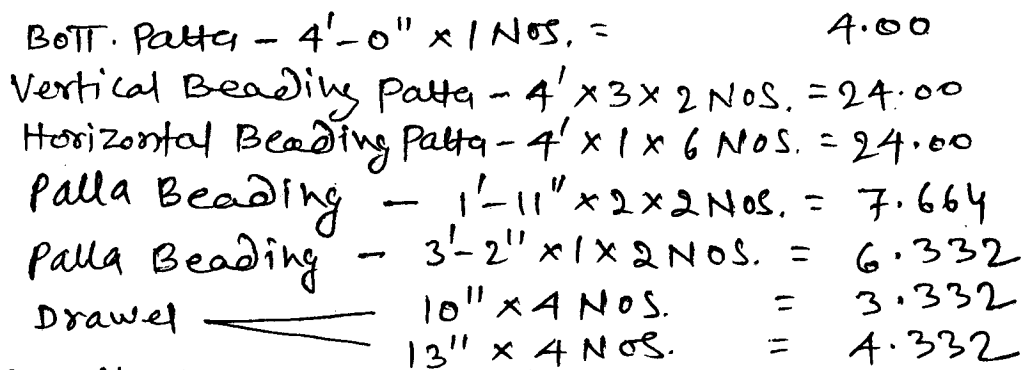 BOTT. Patta - 4'-0" x 1 NOS. = 4.00
Vertical Beading Patta - 4' x 3 x 2 NOS. = 24.00
Horizontal Beading Patta - 4' x 1 x 6 NOS. = 24.00
Palla Beading - 1'-11" x 2 x 2 NOS. = 7.664
Palla Beading - 3'-2" x 1 x 2 NOS. = 6.332
Drawel 10" x 4 NOS. = 3.332
13" x 4 NOS. = 4.332